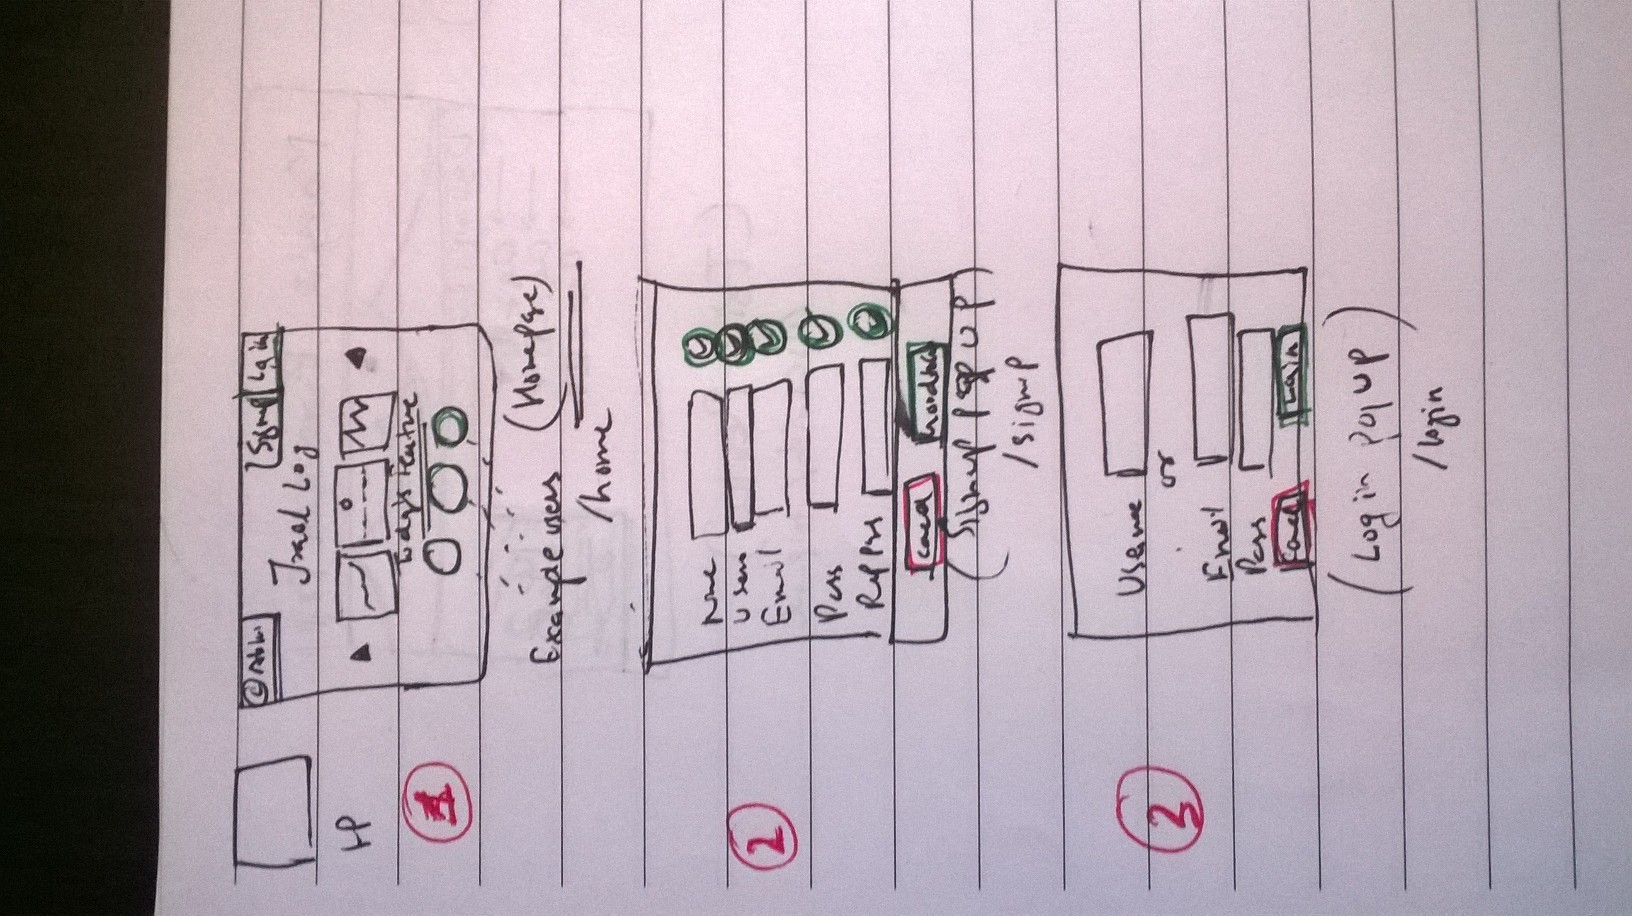 Signup Login
Log
1
Example users
(Homepage)
/home
Name
Users
Email
Pass
Rep Pass
Cancel
(Signup pop up)
/signup
2
Username
or
Email
Pass
Cancel Login
(Login Pop UP)
/login
3